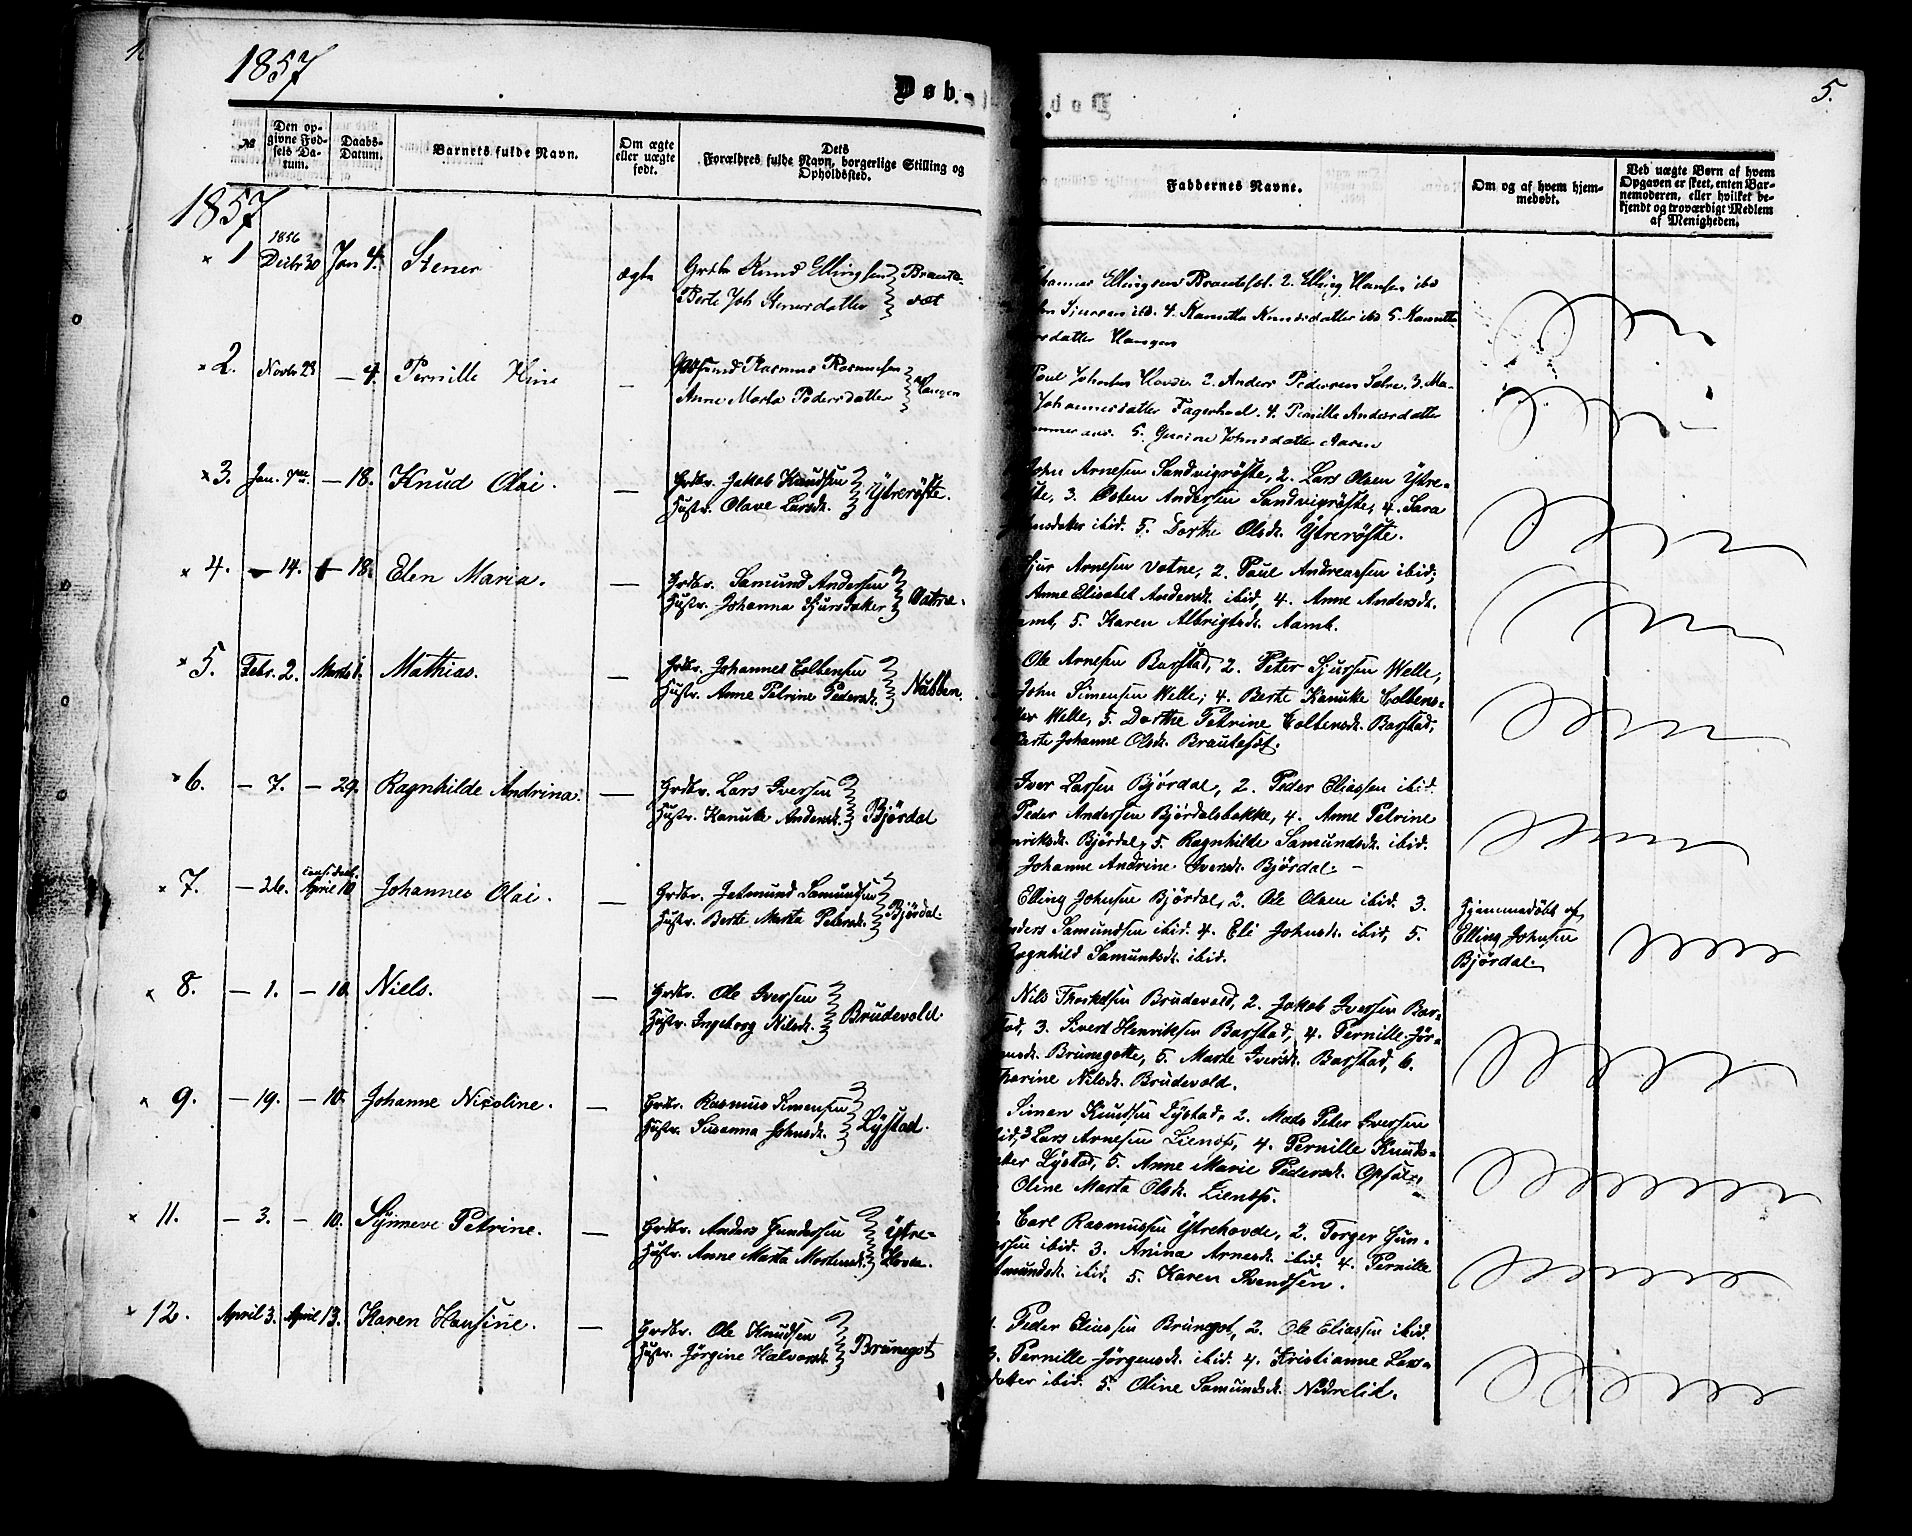 1857
Døb-
5.
№
Den opgivne Fødsels Datum.
Daabs-Datum.
Barnets fulde Navn.
Om ægte eller uægte født.
Dets Forældres fulde Navn, borgerlige Stilling og Opholdssted.
Faddernes Navne.
Om og af hvem hjemmedøbt.
Ved uægte Børn af hvem Opgaven er skeet, enten Barnemoderen, eller hvilket bekjendt og troværdigt Medlem af Menigheden.
1857
1 1856 Decbr 30 Jan 4. Stener ægte Grdbr Knud Ellingsen
Berte Joh Stenersdatter
Ellingsen Brautesæt. 2. Elling Hansen ibd
Sjursen ibd. 4. Knudsdatter ibd 5.
2. Novbr 23 — 4. Pernille — Rasmus Rasmussen
Anne Marta Pedersdatter Haugen
Paul 2. Anders Pedersen 3. Ma-
Johannesdatter Fagerhol. 4. Pernille Andersdatter
5. Gurine Johnsdatter Aasen
3. Jan. — 18. Knud Olai. — Grdbr. Jakob Knudsen
Hustr. Olave Larsdt. Ytrerøste.
John Arnesen Sandvigrøste, 2. Lars Olsen Ytre-
3. Østen Andersen Sandvigrøste, 4. Sara
ibid. 5. Dorthe Olsdt. Ytrerøste.
4. — 14. — 18. Elen Maria. — Grdbr. Samund Andersen
Hustr. Johanna Sjursdatter Vatne.
Sjur Arnesen Vatne, 2. Paul Andreassen ibid;
Anne Elisabet Andersdt. ibid, 4. Anne Andersdt.
5. Karen Albrigtsdt. Aamb.
5. Febr. 2. Marts 1. Mathias. — Grdbr. Johannes Colbensen
Hustr. Anne Petrine Pedersdt. Nubben.
Ole Arnesen Barstad, 2. Peter Sjursen Welle,
John Simensen Welle; 4. Berte Kanuke Colbens-
Welle, 5. Dorthe Petrine Colbensdt. Barstad;
Johanne Olsdt. Brautesæt.
6. — 7. — 29. Ragnhilde Andrina. — Grdbr. Lars Iversen
Hustr. Kanuke Andersdt. Bjørdal
Iver Larsen Bjørdal, 2. Peder Eliassen ibid.
Peder Andersen Bjørdalsbakke, 4. Anne Petrine
Bjørdal, 5. Ragnhilde Samundsdt. ibid.
Johanne Andrine Iversdt. Bjørdal. —
7. — 26. April 10 Johannes Olai. — Grdbr. Jetmund Samundsen
Hustr. Berte Marta Petersdt. Bjørdal.
Elling Johnsen Bjørdal, 2. Ole Olsen ibid. 3.
Anders Samundsen ibid. 4. Eli Johnsdt. ibid, 5.
Ragnhild Samundsdt. ibid.
Hjemmedöbt af
Elling Johnsen
Bjørdal.
8. — 1. — 10. Niels. — Grdbr. Ole Iversen
Hustr. Ingeborg Nilsdt. Brudevold.
Nils Brudevold, 2. Jakob Iversen Bar-
3. Sivert Henriksen Barstad, 4. Pernille Jør-
Brunegotte, 5. Marte Iversdt. Barstad, 6.
Nilsdt. Brudevold.
9. — 19. — 10. Johanne Nicoline. — Grdbr. Rasmus Simensen
Hustr. Susanna Johnsdt. Lystad.
Simen Knudsen Lystad, 2. Mads Peter Iversen
3 Lars Arnesen Lienøs, 4. Pernille Knuds-
Lystad, 5. Anne Marie Pedersdt. Opsal,
Oline Marta Olsdt. Lienøs.
11. — 3. — 10. Synneve Petrine. — Grdbr. Anders Gundersen
Hustr. Anne Marta Mortensdt. Ytre-
Hovde.
Carl Rasmussen Ytrehovde, 2. Torger Gun-
ibid. 3. Anina Arnesdt. ibid. 4. Pernille
ibid. 5. Karen Svendsen.
12. April 3. April 13. Karen Hansine. — Grdbr. Ole Knudsen
Hustr. Jørgine Halvorsdt. Brunegot
Peder Eliassen Brunegot, 2. Ole Eliassen ibid.
3. Pernille Jørgensdt. ibid. 4. Kristianne Lars-
datter ibid. 5. Oline Samundsdt. Nedrelid.